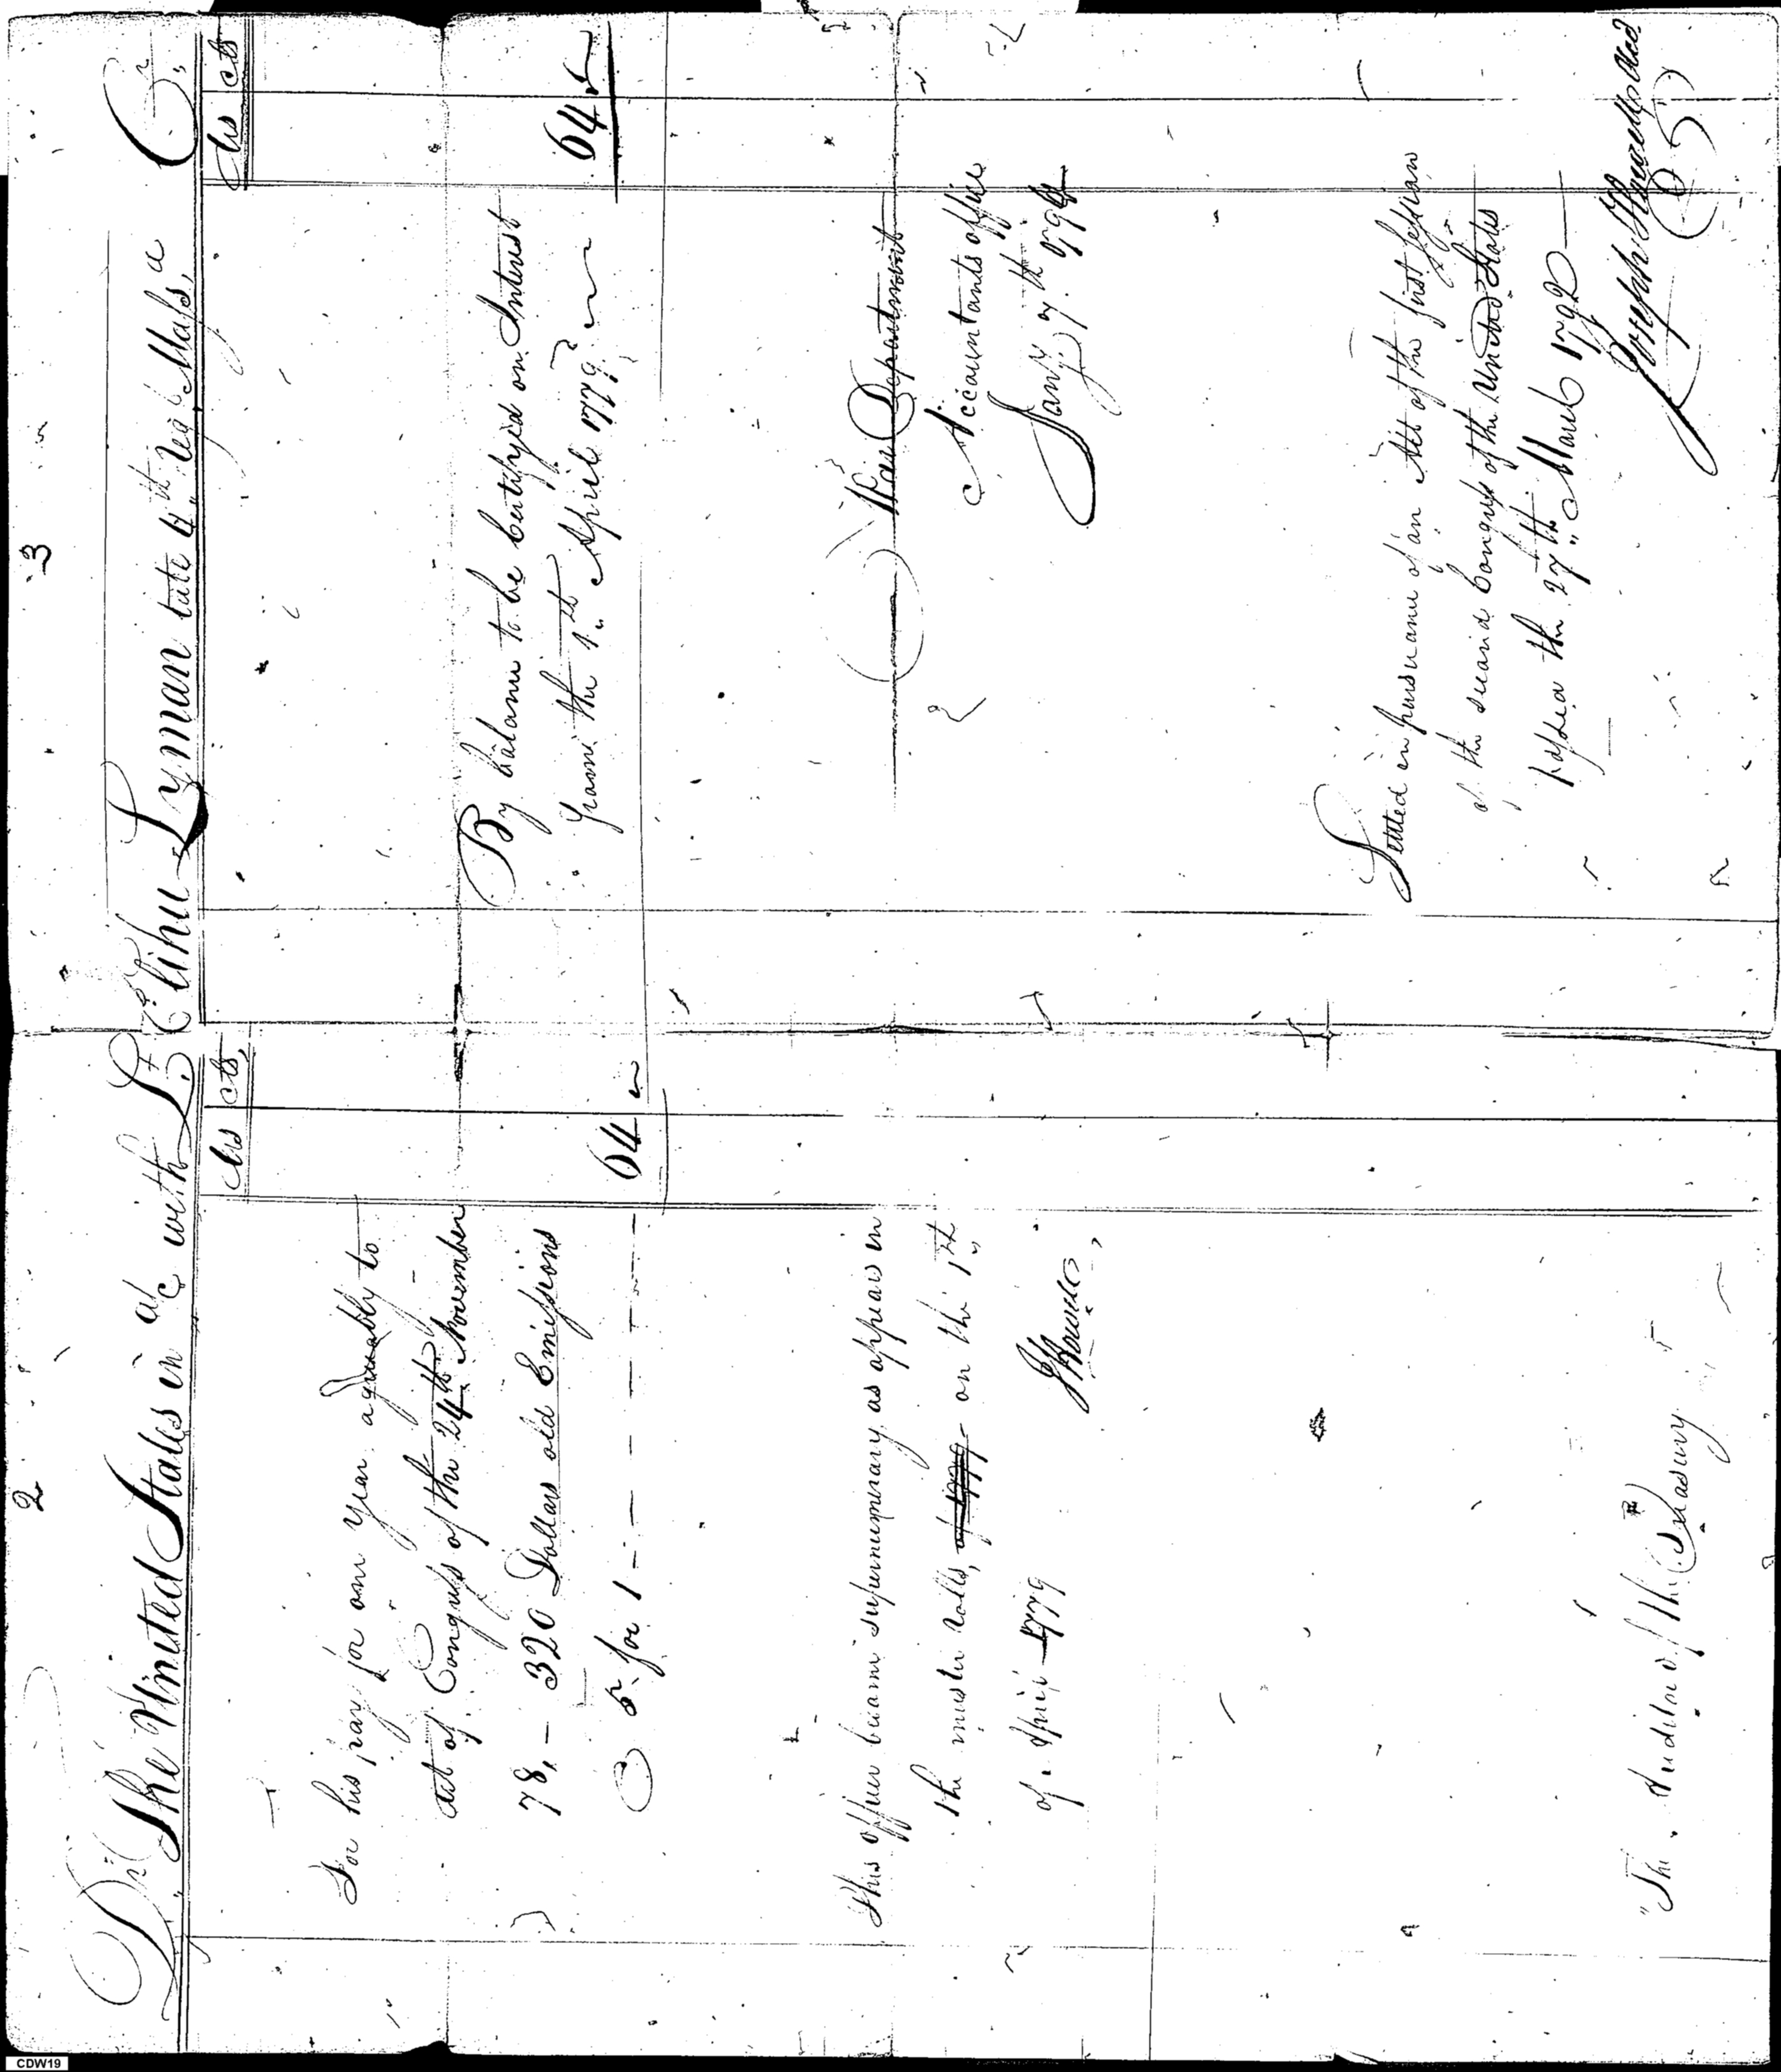 2
Dr. The United States in a/c with Lt.
Dls cts,
For his pay for one year agreeably to
act of Congress of the 24th November
78, — 320 Dollars old Emissions
@ 5 for 1 — — — — — — 64 ~
This officer became supernumerary as appears in
the muster rolls, of 1779 on the 1st
of April 1779
JHowell,
The Auditor of the Treasury
3
Elihu Lyman late 4th Regt Massa. Cr.
Dls cts
By balance to be certifyed on Interest
from the 1st April 1779 ~ 64 ~
War Department
Accountants office
Jany 7th 1794
Settled in pursuance of an Act of the first session
of the second Congress of the United States
passed the 27th March 1792 —
Joseph Howell Acct
CDW19